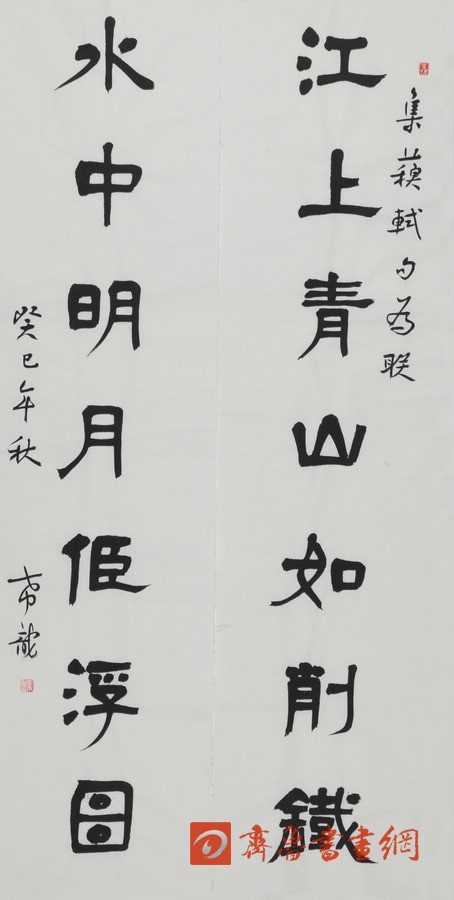 集蘓軾句為联
江上青山如削鐵
水中明月臥浮圖
癸巳年秋
齊魯書畫網